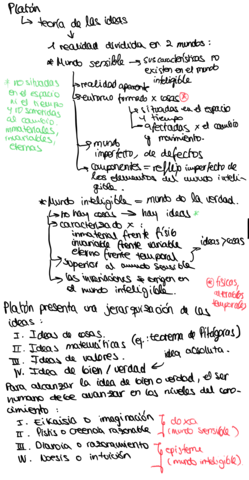 Platón
↳ teoría de las ideas
↳ 1 realidad dividida en 2 mundos:
* Mundo sensible → sus características no existen en el mundo inteligible
→ realidad aparente
→ entorno formado x cosas *
→ situadas en el espacio y tiempo
→ afectadas x el cambio y movimiento.
→ mundo imperfecto, de defectos
→ componentes = reflejo imperfecto de los elementos del mundo inteligible.
* no situadas en el espacio ni el tiempo y no sometidas al cambio inmateriales, invariables, eternas
* Mundo inteligible = mundo de la verdad.
→ no hay cosas → hay ideas *
→ caracterizado x:
inmaterial frente físio
invariable frente variable
eterno frente temporal
ideas > cosas
→ superior al mundo sensible
→ las invariaciones se exigen en el mundo inteligible.
* físicas, variables temporales
Platón presenta una jerarquización de las ideas:
I. Ideas de cosas.
II. Ideas matemáticas (ej: teorema de Pitágoras)
III. Ideas de valores.
IV. Idea de bien / verdad ← idea absoluta.
Para alcanzar la idea de bien o verdad, el ser humano debe avanzar en los niveles del conocimiento:
I. Eikaisia o imaginación
II. Pistis o creencia razonable
doxa (mundo sensible)
III. Dianoia o razonamiento
IV. Noesis o intuición
episteme (mundo inteligible)